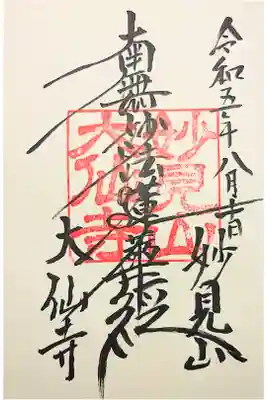 令和五年八月
妙見山
南無妙法蓮華経
大仙寺
妙見山
大仙寺